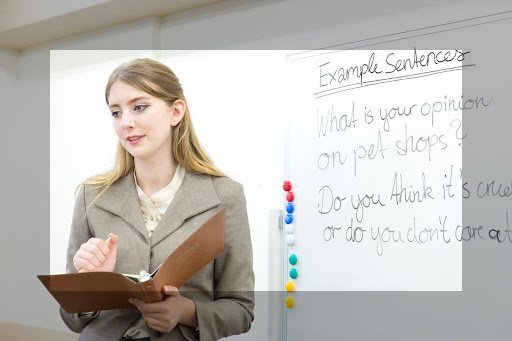 Example Sentences
What is your opinion
on pet shops?
Do you think it's cruel
or do you don't care at